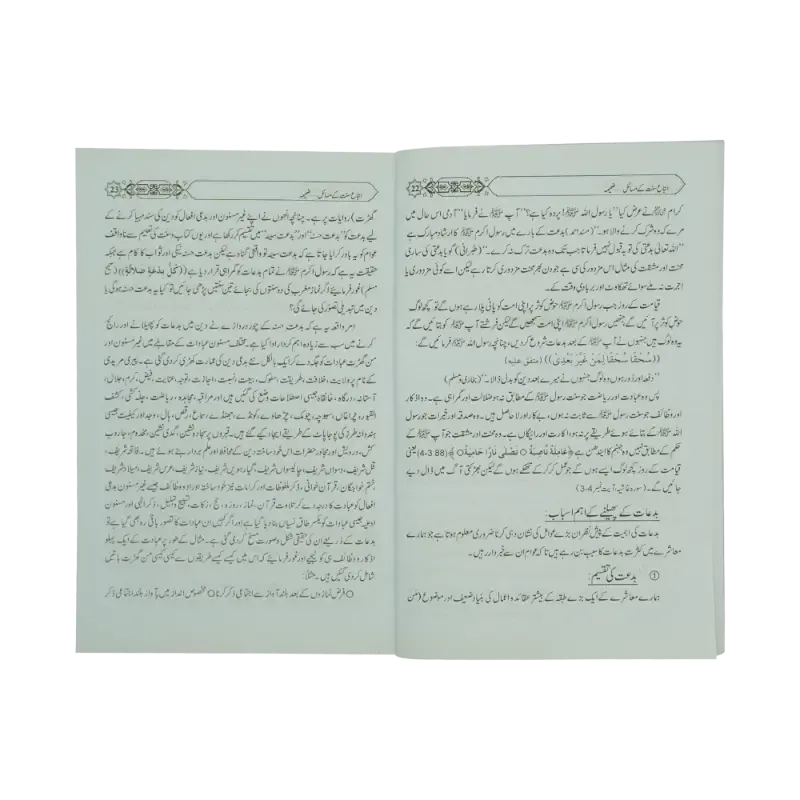 22 اتباع سنت کے مسائل ... ضمیمہ
کرام نے عرض کیا ”یا رسول اللہ ﷺ! پردہ کیا ہے؟“ آپ ﷺ نے فرمایا ”آدمی اس حال میں
مرے کہ وہ شرک کرنے والا ہو۔“ (مسند احمد) بدعت کے بارے میں رسول اکرم ﷺ کا ارشاد مبارک ہے
”اللہ تعالیٰ بدعتی کی توبہ قبول نہیں فرماتا جب تک وہ بدعت ترک نہ کرے۔“ (طبرانی) گویا بدعتی کی ساری
محنت اور مشقت کی مثال اس مزدور کی سی ہے جو دن بھر محنت مزدوری کرتا رہے لیکن اسے کوئی مزدوری یا
اجرت نہ ملے سوائے تھکاوٹ اور بربادی وقت کے۔
قیامت کے روز جب رسول اکرم ﷺ حوض کوثر پر اپنی امت کو پانی پلا رہے ہوں گے تو کچھ لوگ
حوض کوثر پر آئیں گے جنہیں رسول اکرم ﷺ اپنی امت سمجھیں گے لیکن فرشتے آپ ﷺ کو بتائیں گے کہ
یہ وہ لوگ ہیں جنہوں نے آپ ﷺ کے بعد بدعات شروع کر دیں، چنانچہ رسول اللہ ﷺ فرمائیں گے:
((سُحْقًا سُحْقًا لِمَنْ غَيَّرَ بَعْدِيْ)) (متفق عليه)
”دفعہ اور دُور ہوں وہ لوگ جنہوں نے میرے بعد دین کو بدل ڈالا۔“ (بخاری و مسلم)
پس وہ عبادت اور ریاضت جو سنت رسول ﷺ کے مطابق نہ ہو ضلالت اور گمراہی ہے۔ وہ اذکار
اور وظائف جو سنت رسول ﷺ سے ثابت نہ ہوں، بے کار اور لاحاصل ہیں۔ وہ صدقہ اور خیرات جو رسول
اللہ ﷺ کے بتائے ہوئے طریقے پر نہ ہو اکارت اور رائیگاں ہے۔ وہ محنت اور مشقت جو آپ ﷺ کے
حکم کے مطابق نہیں وہ جہنم کا ایندھن ہے ﴿عَامِلَةٌ نَّاصِبَةٌ ○ تَصْلٰى نَارًا حَامِيَةً ○﴾ (4-3:88) یعنی
قیامت کے روز کچھ لوگ ایسے ہوں گے جو عمل کر کر کے تھکے ہوں گے لیکن بھڑکتی آگ میں ڈال دیے
جائیں گے۔ (سورہ غاشیہ، آیت نمبر 4-3)
بدعات کے پھیلنے کے اہم اسباب:
بدعات کی اہمیت کے پیش نظر ان بڑے عوامل کی نشان دہی کرنا ضروری معلوم ہوتا ہے جو ہمارے
معاشرے میں کثرت بدعات کا سبب بن رہے ہیں تاکہ عوام ان سے خبردار رہیں۔
① بدعت کی تقسیم:
ہمارے معاشرے کے ایک بڑے طبقہ کے بیشتر عقائد و اعمال کی بنیاد ضعیف اور موضوع (من
23 اتباع سنت کے مسائل ... ضمیمہ
گھڑت) روایات پر ہے۔ چنانچہ انھوں نے اپنے غیر مسنون اور بدعی افعال کو دین کی سند مہیا کرنے کے
لیے بدعت کو ”بدعت حسنہ“ اور ”بدعت سیئہ“ میں تقسیم کر رکھا ہے اور یوں کتاب و سنت کی تعلیم سے ناواقف
عوام کو یہ باور کرایا جاتا ہے کہ بدعت سیئہ تو واقعی گناہ ہے لیکن بدعت حسنہ نیکی اور ثواب کا کام ہے جبکہ
حقیقت یہ ہے کہ رسول اکرم ﷺ نے تمام بدعات کو گمراہی قرار دیا ہے ((كُلُّ بِدْعَةٍ ضَلَالَةٌ)) (صحیح
مسلم) غور فرمایئے! اگر نماز مغرب کی دو سنتوں کی بجائے تین سنتیں پڑھی جائیں تو کیا یہ بدعت حسنہ ہوگی یا
دین میں تبدیلی تصور کی جائے گی؟
امر واقعہ یہ ہے کہ بدعت حسنہ کے چور دروازے نے دین میں بدعات کو پھیلانے اور رائج
کرنے میں سب سے زیادہ اہم کردار ادا کیا ہے۔ مختلف مسنون عبادات کے مقابلے میں غیر مسنون اور
من گھڑت عبادات کو جگہ دے کر ایک بالکل نئے بدعی دین کی عمارت کھڑی کر دی گئی ہے۔ پیری مریدی
کے نام پر ولایت، خلافت، طریقت، سلوک، بیعت، نسبت، اجازت، توجہ، عنایت، فیض، کرم، جلال،
آستانہ، درگاہ، خانقاہ جیسی اصطلاحات وضع کی گئیں ہیں اور مراقبہ، مجاہدہ، ریاضت، چلہ کشی، کشف
القبور، چراغاں، سبوچہ، چومک، چڑھاوے، کونڈے، جھنڈے، سماع، رقص، حال، وجد اور کیفیت جیسی
ہندوانہ طرز کی پوجا پاٹ کے طریقے ایجاد کیے گئے ہیں۔ قبروں پر سجادہ نشین، گدی نشین، مخدوم، جاروب
کش، درویش اور مجاور حضرات اس خود ساختہ دین کے محافظ اور علم بردار بنے ہوئے ہیں۔ فاتحہ شریف،
قل شریف، دسواں شریف، چالیسواں شریف، گیارہویں شریف، نیاز شریف، عرس شریف، میلاد شریف
ختم خواجگان، قرآن خوانی، ذکر ملفوظات اور کرامات نیز خود ساختہ اوراد و وظائف جیسے غیر مسنون بدعی
افعال کو عبادت کا درجہ دے کر تلاوت قرآن، نماز، روزہ، حج، زکاۃ، تسبیح و تہلیل، ذکر الٰہی اور مسنون
ادعیہ جیسی عبادات کو یکسر طاق نسیاں بنا دیا گیا ہے اور اگر کہیں ان عبادات کا تصور باقی رہ بھی گیا ہے تو
بدعات کے ذریعے ان کی حقیقی شکل و صورت مسخ کر دی گئی ہے۔ مثال کے طور پر عبادات کے ایک پہلو
اذکار و وظائف ہی کو لیجئے اور غور فرمایئے کہ اس میں کیسے کیسے طریقوں سے کیسی کیسی من گھڑت باتیں
شامل کر دی گئیں ہیں۔ مثلاً:
○ فرض نمازوں کے بعد بلند آواز سے اجتماعی ذکر کرنا ○ مخصوص انداز میں بآواز بلند اجتماعی ذکر